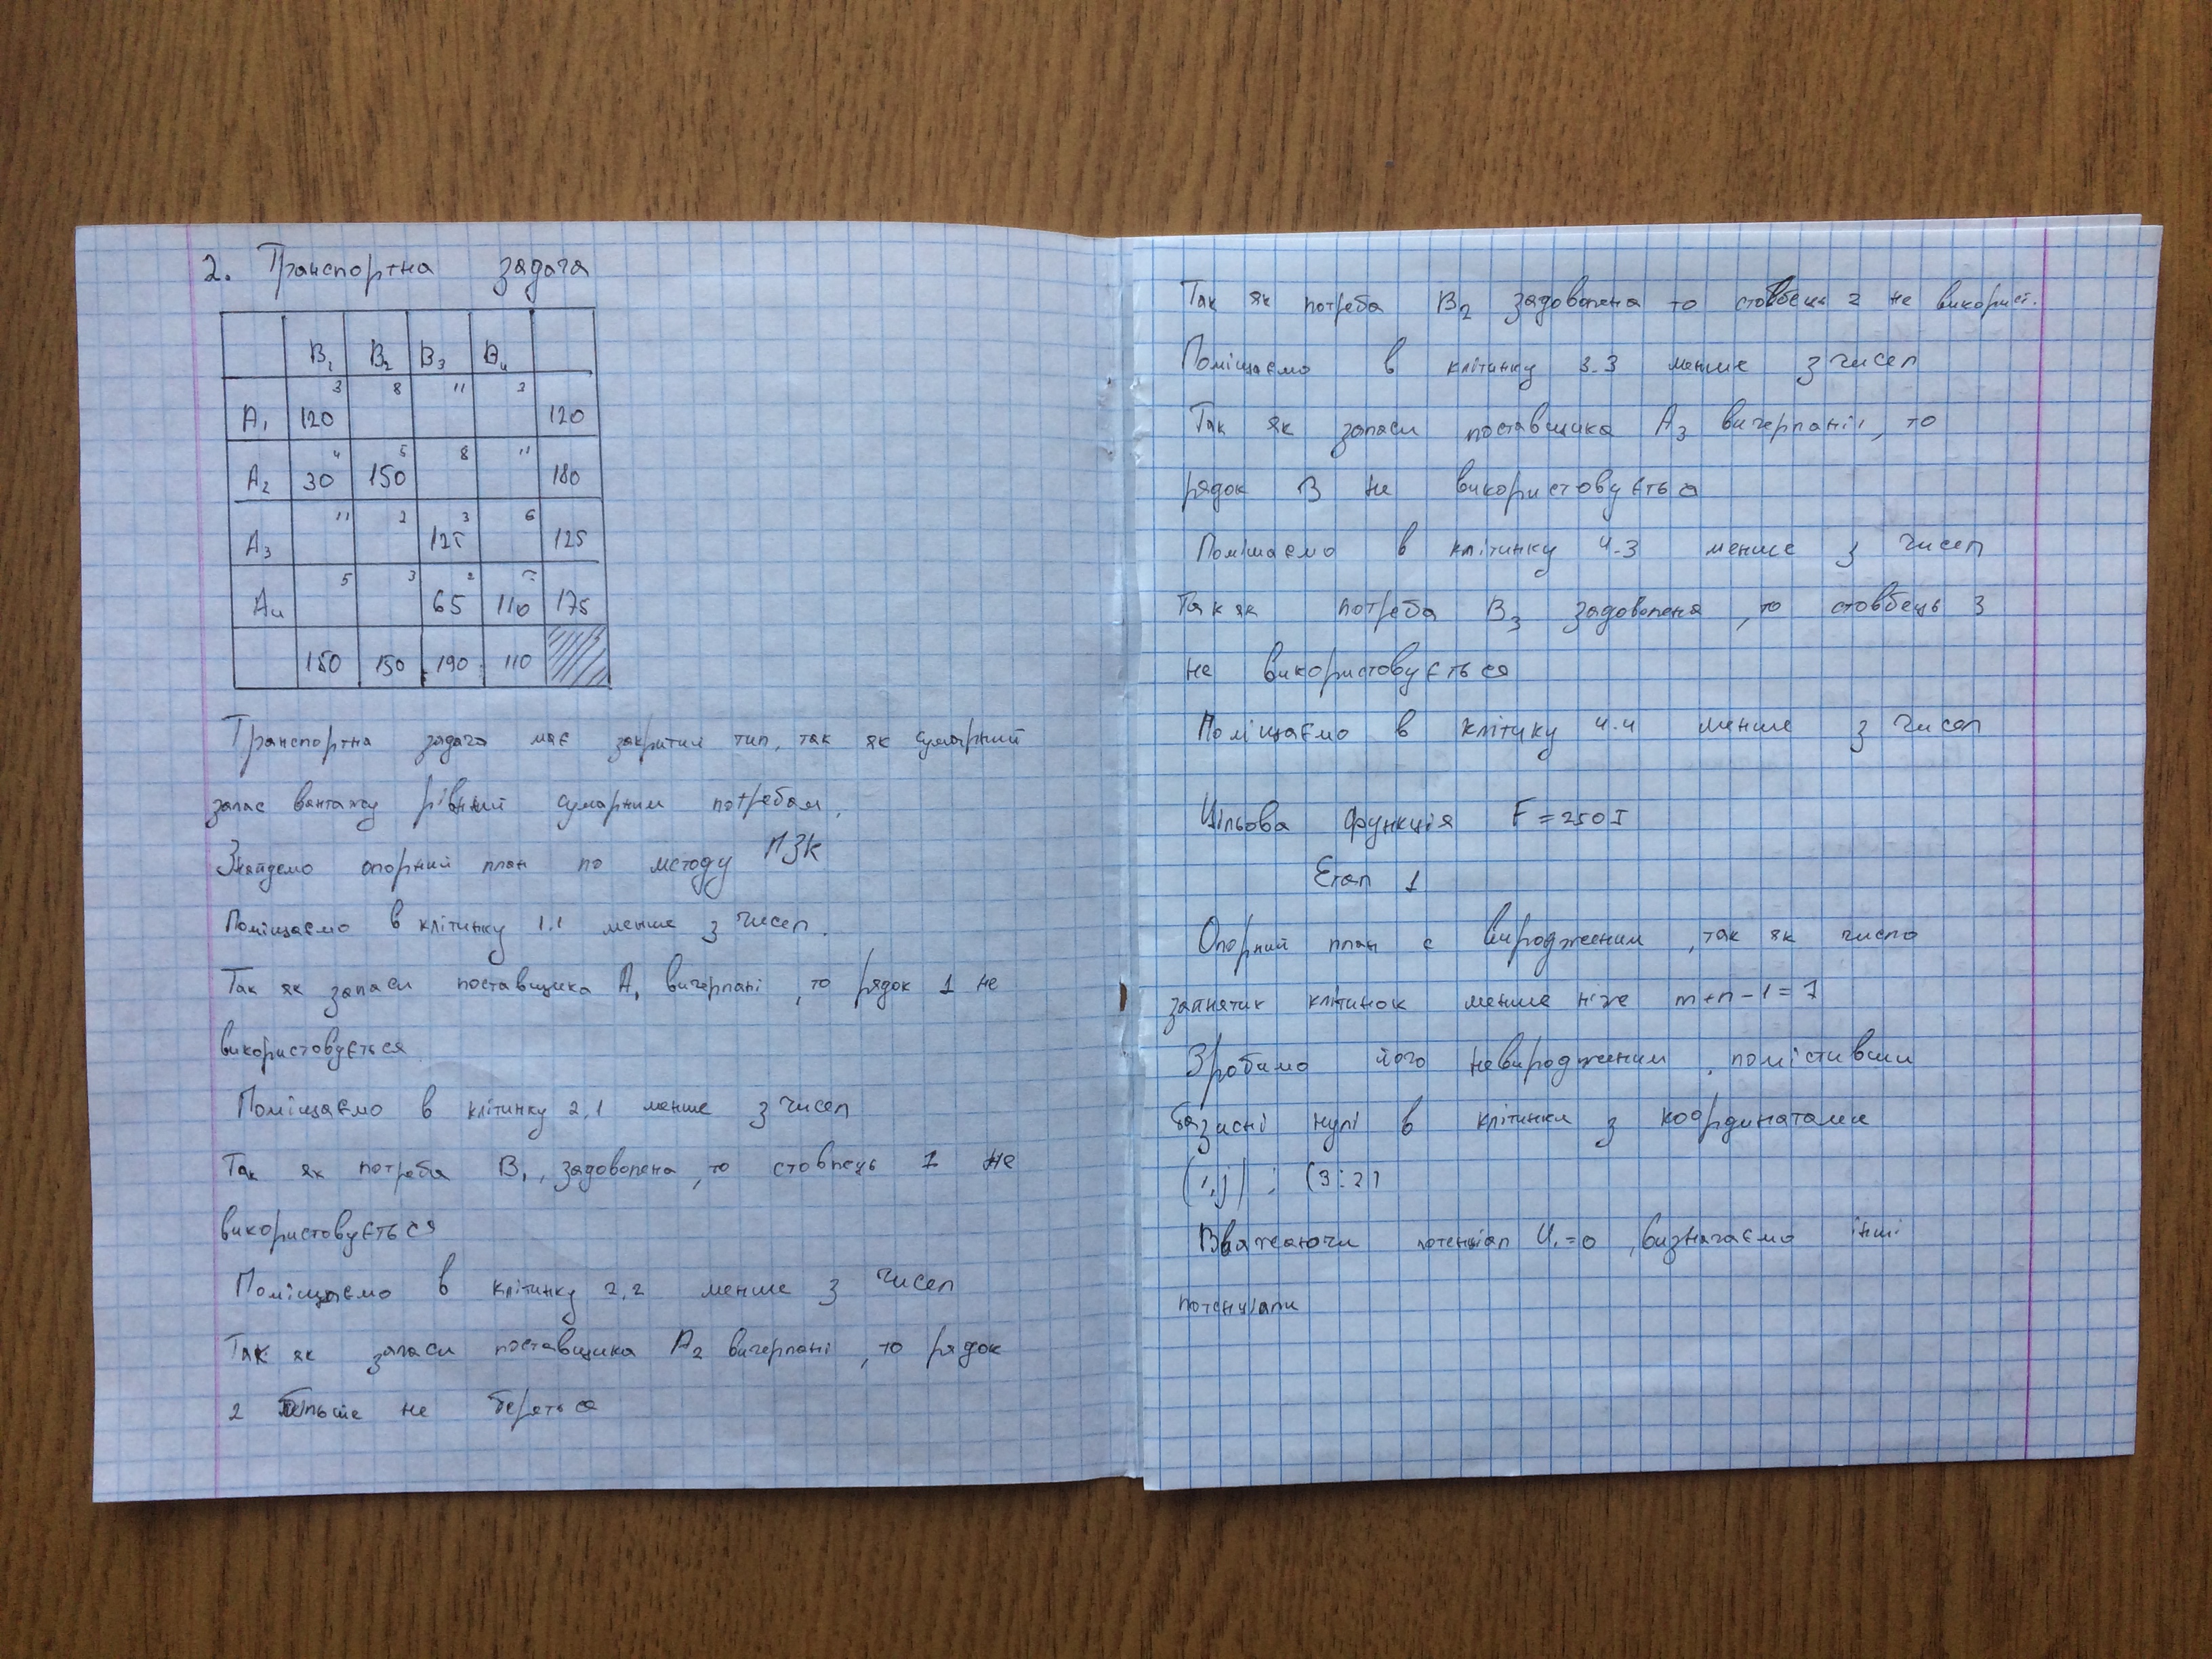 2. Транспортна задача
B1 B2 B3 B4
3 8 11 3
A1 120 120
4 5 8 11
A2 30 150 180
11 2 3 6
A3 125 125
5 3 2
A4 65 110 175
150 150 190 110
Транспортна задача має закритий тип, так як сумарний
запас вантажу рівний сумарним потребам.
Знайдемо опорний план по методу ПЗК
Поміщаємо в клітинку 1.1 менше з чисел.
Так як запаси поставщика A1 вичерпані, то рядок 1 не
використовується
Поміщаємо в клітинку 2,1 менше з чисел
Так як потреба B1, задоволена, то стовпець 1 не
використовується
Поміщаємо в клітинку 2,2 менше з чисел
Так як запаси поставщика A2 вичерпані, то рядок
2 більше не береться
Так як потреба B2 задоволена то стовбець 2 не використ.
Поміщаємо в клітинку 3.3 менше з чисел
Так як запаси поставщика A3 вичерпані, то
рядок 3 не використовується
Поміщаємо в клітинку 4.3 менше з чисел
Так як потреба B3 задоволена, то стовбець 3
не використовується
Поміщаємо в клітику 4.4 менше з чисел
Цільова функція F = 2505
Етап 1
Опорний план є виродженим, так як число
зайнятих клітинок менше ніже m+n-1=7
Зробимо його невиродженим, помістивши
базисні нулі в клітинки з координатами
(i,j) : (3:2)
Вважаючи потенціал U1=0, визначаємо інші
потенціали